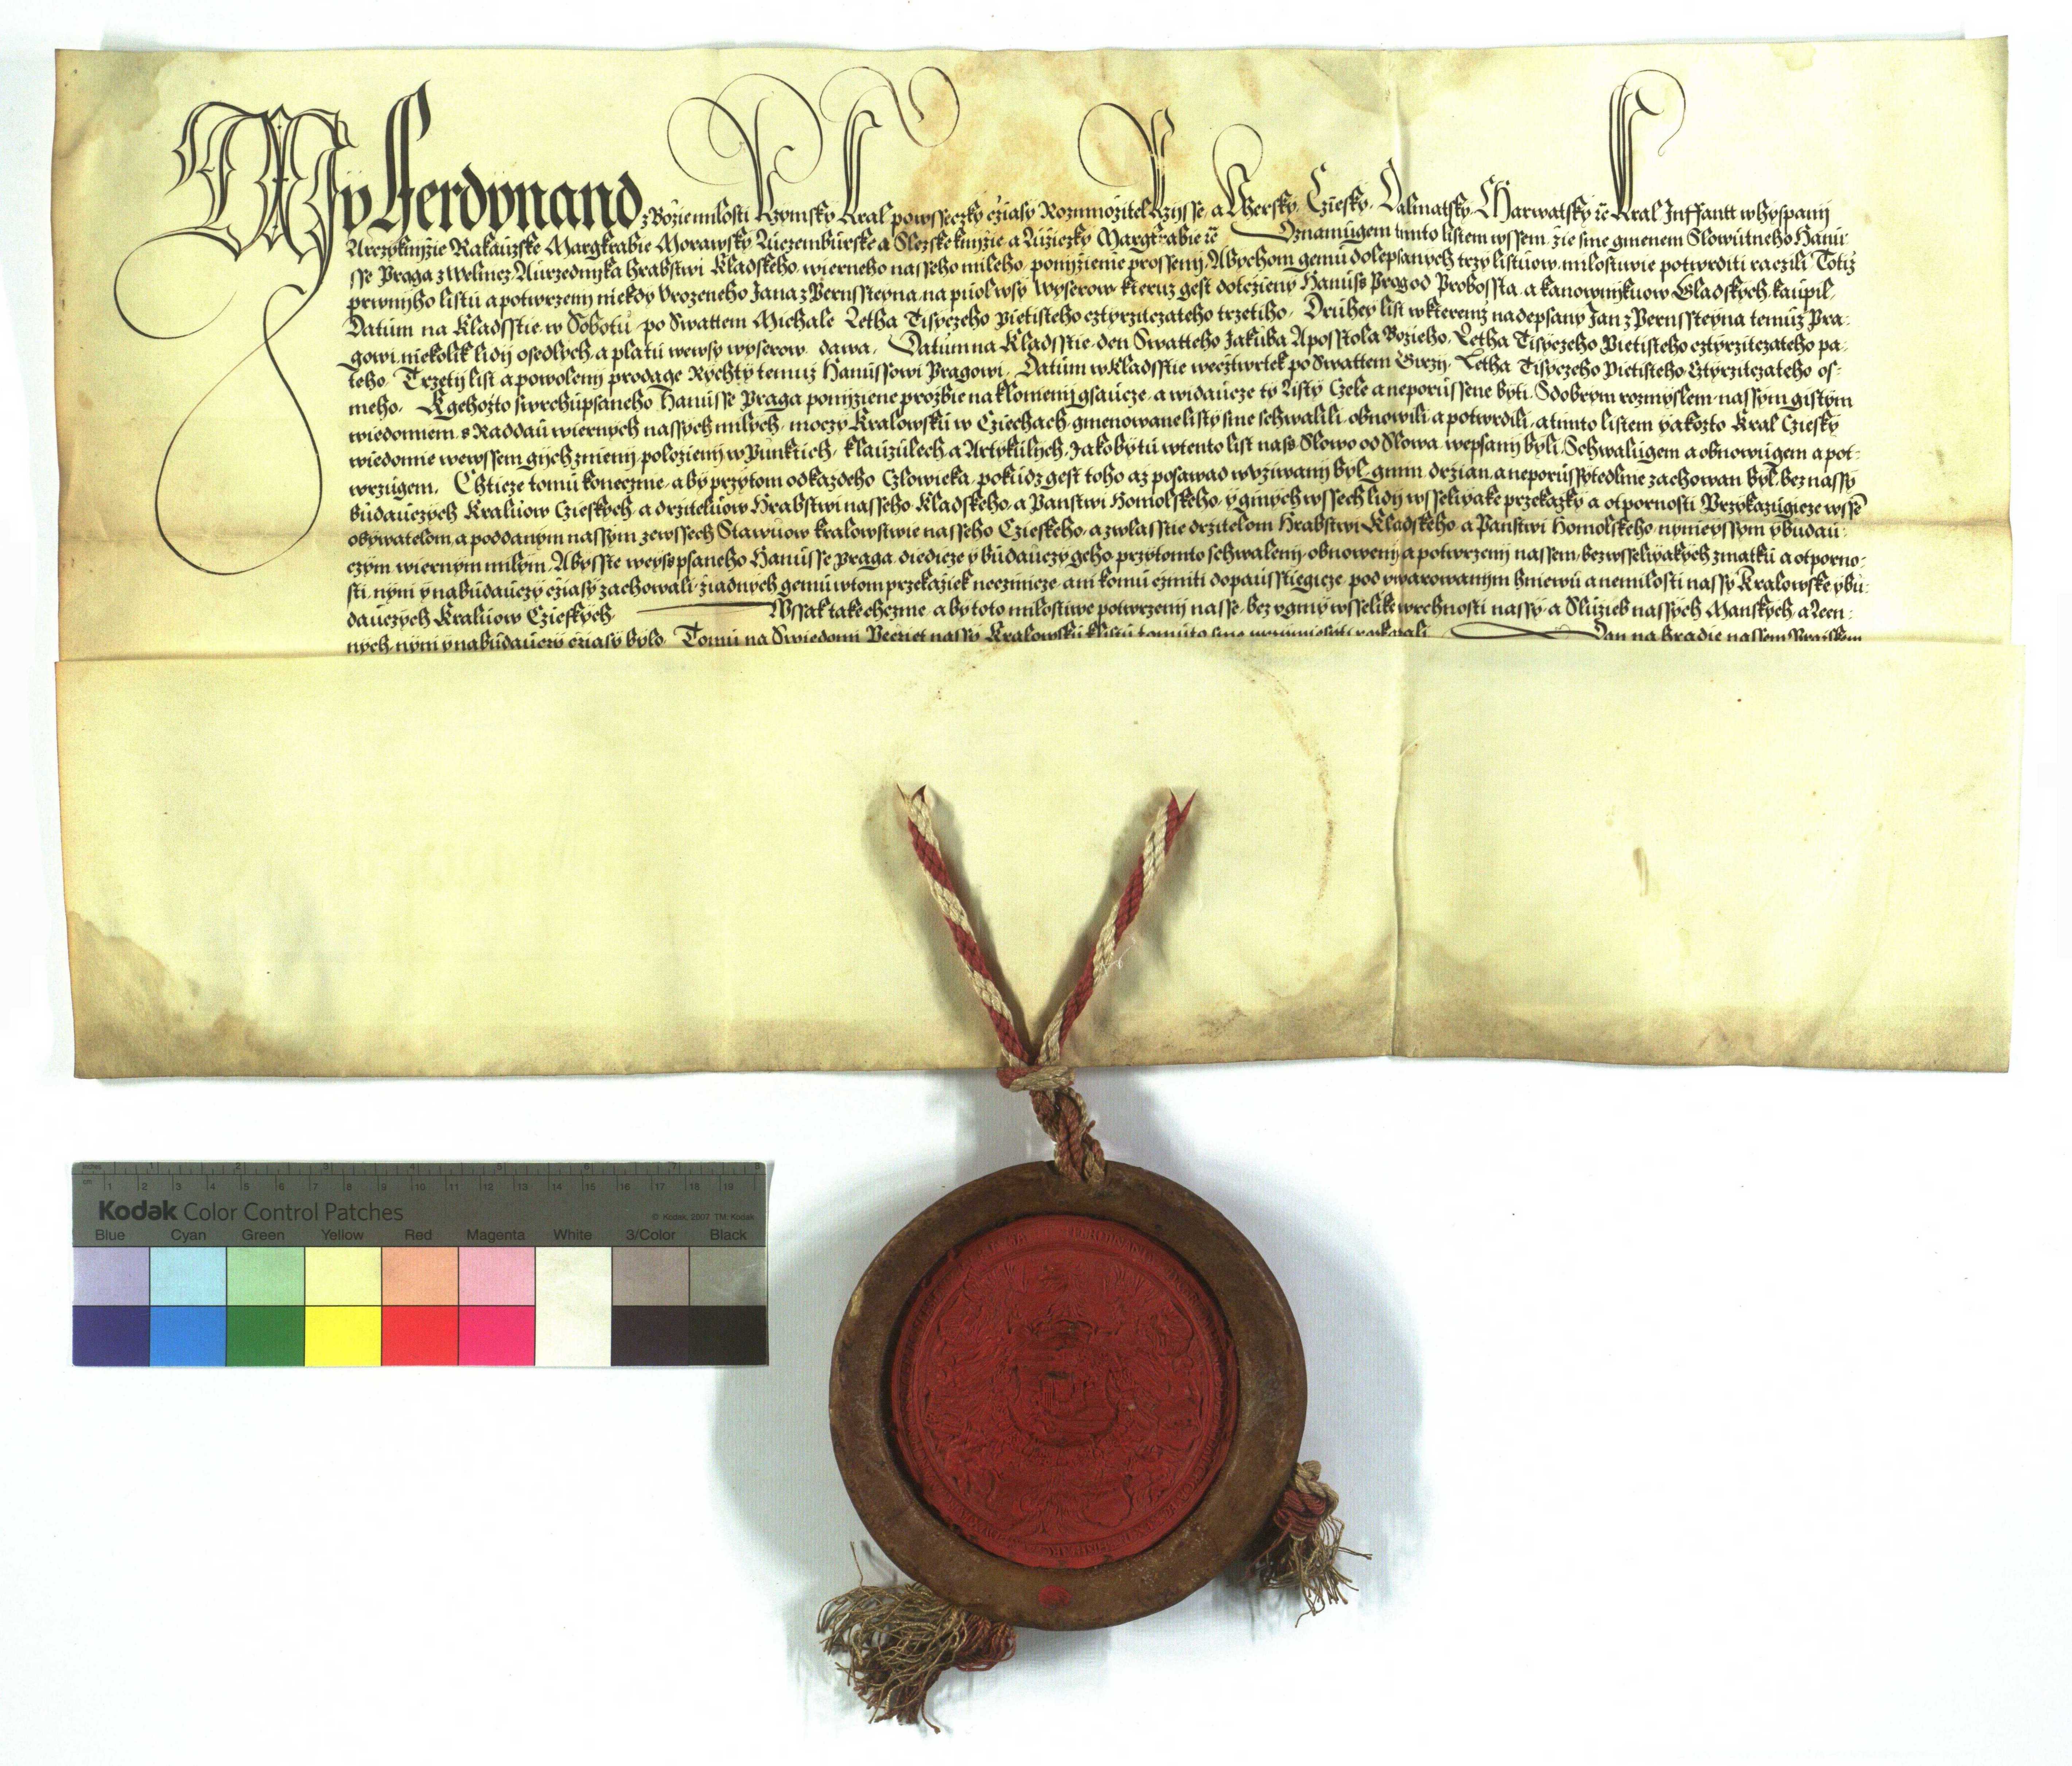 My Ferdynand z Božie milosti Rzymsky Kral powsseczky cžiasy Rozmnožitel Rzysse, a Vhersky, Cziesky, Dalmatsky, Charwatsky ꝛc̃ Kral Inffantt w hyspanij
Arczyknijžie Rakauzske Margkrabie Morawsky, Luczemburske a Slezske knijžie a Lužiczky Margkrabie ꝛc̃ Oznamugem tijmto listem wssem, žie sme gmenem Slowutneho Hanu-
sse Praga z Welmez, Aurzednyka hrabstwi Kladskeho, wierneho nasseho mileho, ponijžienie prosseny, Abychom gemu dolepsanych trzy listuow, milostiwie potwrditi raczili, Totiž
prwnijho listu a potwrzeny niekdy Vrozeneho Jana z Pernssteyna, na puol wsy Wyserow, kteruz gest dotczieny Hanuss Prog od Probossta, a kanownijkuow Gladskych, kaupil,
Datum na Kladsstie w Sobotu, po Swattem Michale Letha Tisyczeho Pietisteho cztyrzitczateho trzetiho, Druhey list w kteremž nadepsany Jan z Pernssteyna temuž Pra-
gowi, niekolik lidij osedlych, a platu we wsy wyserow, dawa, Datum na Kladsstie, den Swatteho Jakuba Aposstola Bozieho, Letha Tisyczeho Pietisteho cztyrzitczateho pa-
teho, Trzetij list a powoleny prodage Rychty temuž Hanussowi Pragowi, Datum w Kladsstie we cžtwrtek po Swattem Girzy, Letha Tisyczeho Pietisteho, Cztyrzitczateho os-
meho, K gehožto swrchupsaneho Hanusse Praga ponijziene prozbie naklonieni gsaucze, a widaucze ty Listy Czele a neporussene byti, S dobrym rozmyslem, nassym gistym
wiedomiem, s Raddau wiernych nassych milych, moczy Kralowsku w Cziechach, gmenowane listy sme schwalili, obnowili a potwrdili, a tijmto listem yakožto Kral Cziesky
wiedomie we wssem gych znieny, polozieny w Punktich, klauzulech, a Artykulych, Jakoby tu w tento list nass Slowo od Slowa, wepsany byli, Schwalugem a obnowugem a pot-
wrzugem, Chticze tomu konecznie, aby przytom od každeho Czlowieka, pokudz gest toho až posawad w vziwany byl, gmin držian, a neporussytedlnie zachowan byl, bez nassy
buducych Kraluow Czieskych, a držiteluow Hrabstwi nasseho Kladskeho, a Panstwi Homolskeho, y ginych wssech lidij wsseliyake przekazky a otpornosti Przykazugicze wssē
obywatelom, a poddanym nassym ze wssech Stawuow kralowstwie nasseho Czieskeho, a zwlasstie držitelom Hrabstwi Kladskeho, a Panstwi Homolskeho, nynieyssym y budau-
czym, wiernym milym, Abysste weyssepsaneho Hanusse Praga, diedicze y budauczy geho, przy tomto schwaleny, obnoweny, a potwrzeny nassem, bez wsseliyakych zmatku a otporno-
sti, nyni y na budauczy cžiasy zachowali, žiadnych gemu w tom przekažiek neczinicze, ani komu cžiniti dopausstiegicze, pod vwarowanim hniewu a nemilosti nassy Kralowske y bu-
dauczych Kraluow Czieskych, Wssak take chczme, aby toto milostiwe potwrzeny nasse, bez vgmy wsselike wrchnosti nassy, a Sluzieb nassych Manskych, a Leen-
nych, nyni y na budauczy cžiasy bylo, Tomu na Swiedomi Peczet nassy Kralowsku k listu tomuto sme przywiesyti rozkazali Dan na hradie nassem Prazskem
inches 1 2 3 4 5 6 7 8
cm 1 2 3 4 5 6 7 8 9 10 11 12 13 14 15 16 17 18 19
Kodak Color Control Patches © Kodak, 2007 TM: Kodak
Blue Cyan Green Yellow Red Magenta White 3/Color Black